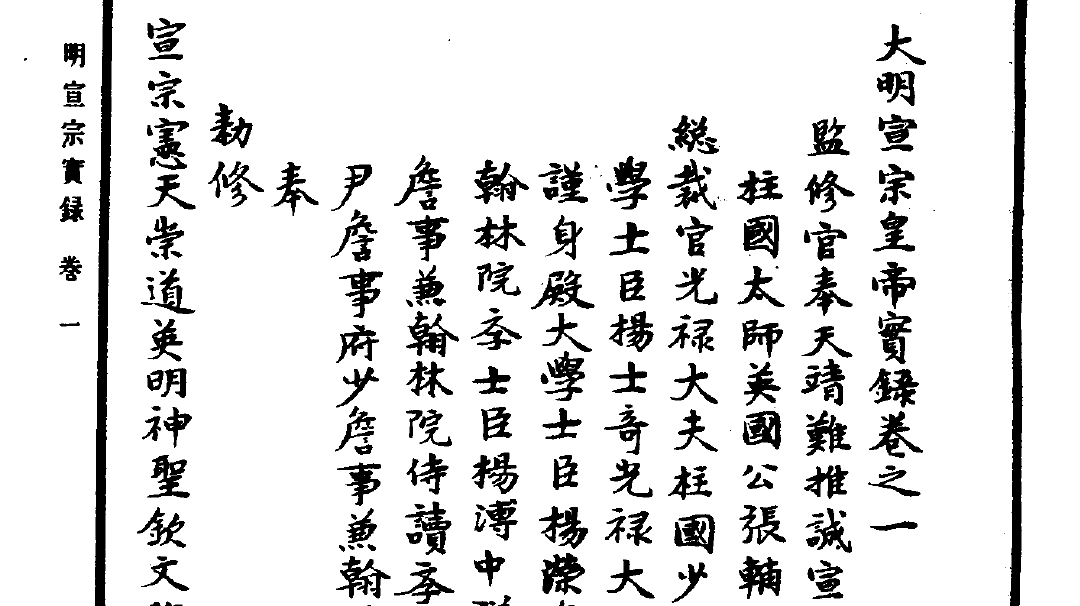 大明宣宗皇帝實録卷之一
監修官奉天靖難推誠宣
柱國太師英國公張輔
総裁官光禄大夫柱國少
學士臣楊士竒光禄大
謹身殿大學士臣楊榮
翰林院斈士臣楊溥中
詹事兼翰林院侍讀斈
尹詹事府少詹事兼翰
奉
勑修
宣宗憲天崇道英明神聖欽文
明宣宗實録 卷一